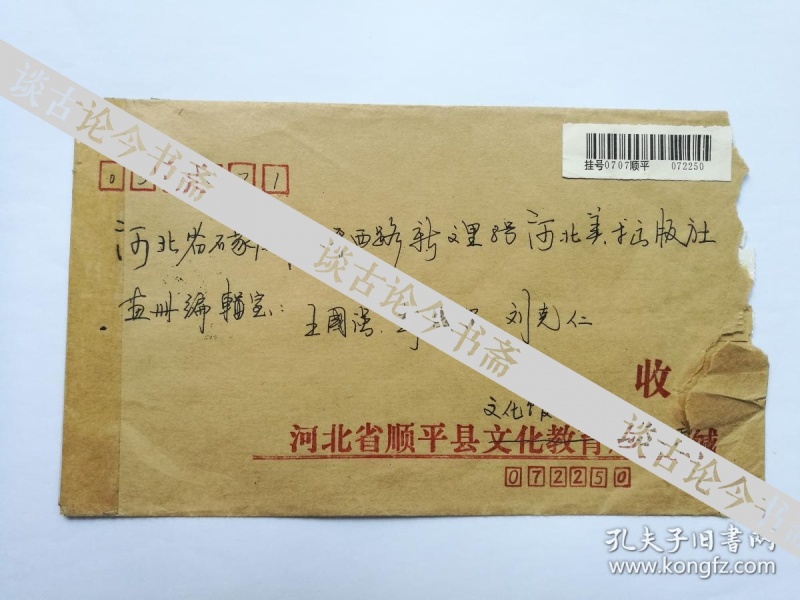 挂号0707顺平 072250
0 7 1
河北省石家 西路新文里8号河北美术出版社
画册编辑室: 王國 刘克仁
收
文化
河北省顺平县文化教育 缄
072250
谈古论今书斋
谈古论今书斋
谈古论今书斋
孔夫子旧书网
www.kongfz.com